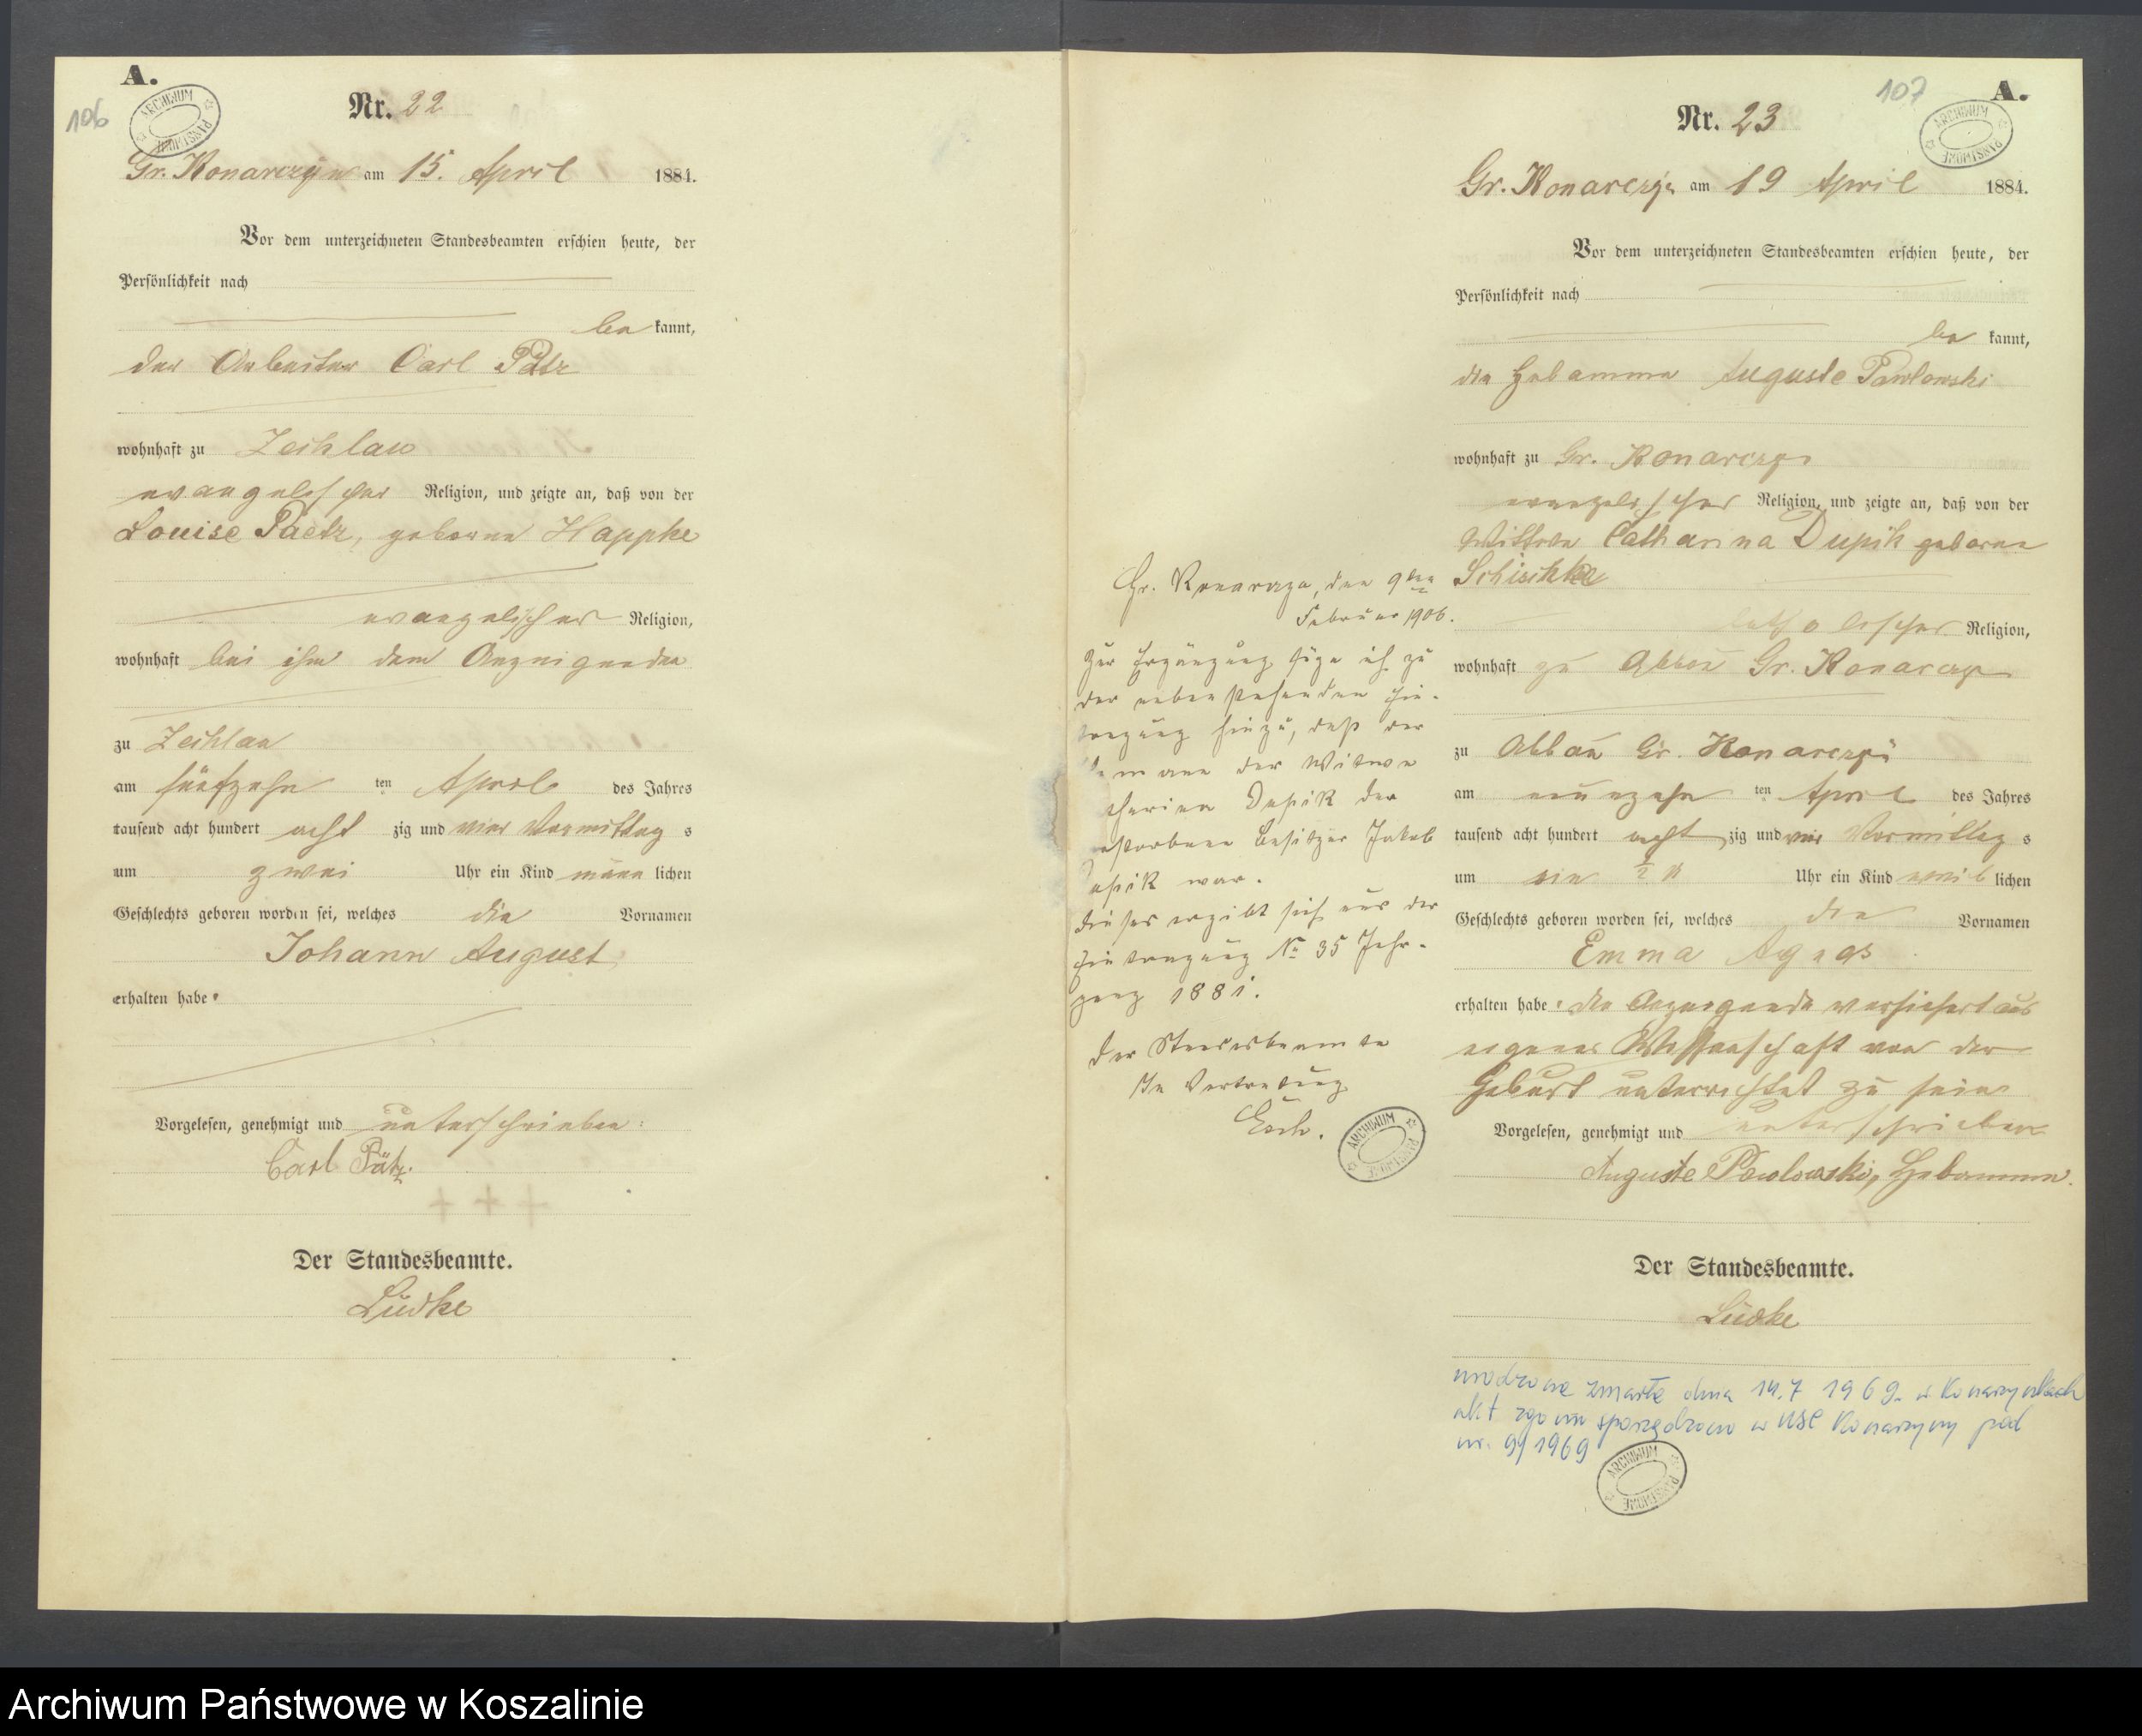 A.
106
ARCHIWUM PAŃSTWOWE
Nr. 22
Gr. Konarczyn am 15. April 1884.
Vor dem unterzeichneten Standesbeamten erschien heute, der
Persönlichkeit nach
be kannt,
der Arbeiter Carl Pätz
wohnhaft zu Zechlau
evangelischer Religion, und zeigte an, daß von der
Louise Paetz, geborne Happke
evangelischer Religion,
wohnhaft bei ihm dem Anzeigenden
zu Zechlau
am fünfzehn ten April des Jahres
tausend acht hundert acht zig und vier Vormittag s
um zwei Uhr ein Kind männ lichen
Geschlechts geboren worden sei, welches die Vornamen
Johann August
erhalten habe.
Vorgelesen, genehmigt und unterschrieben:
Carl Pätz.
Der Standesbeamte.
Lüdke
107
A.
ARCHIWUM PAŃSTWOWE
Nr. 23
Gr. Konarczyn am 19 April 1884.
Vor dem unterzeichneten Standesbeamten erschien heute, der
Persönlichkeit nach
be kannt,
die Hebamme Auguste Pawlowski
wohnhaft zu Gr. Konarczyn
evangelischer Religion, und zeigte an, daß von der
Wittwe Catharina Dupik geborne
Schischke
katholischer Religion,
wohnhaft zu Abbau Gr. Konarczyn
zu Abbau Gr. Konarczyn
am neunzehn ten April des Jahres
tausend acht hundert acht zig und vier Vormittag s
um ein ½ Uhr ein Kind weib lichen
Geschlechts geboren worden sei, welches die Vornamen
Emma Agnes
erhalten habe. die Anzeigende versichert aus
eigener Wissenschaft von der
Geburt unterrichtet zu sein
Vorgelesen, genehmigt und unterschrieben
Auguste Pawlowski, Hebamme.
Der Standesbeamte.
Lüdke
Gr. Konarczyn, den 9ten
Februar 1906.
Zur Ergänzung füge ich zu
der nebenstehenden Ein-
tragung hinzu, daß der
Ehemann der Witwe
Catharina Dupik der
verstorbene Besitzer Jakob
Dupik war.
Dieses ergibt sich aus der
Eintragung No 35 Jahr-
gang 1881.
Der Standesbeamte
In Vertretung
ARCHIWUM PAŃSTWOWE
zmarła dnia 14.7 1969 w Konarzynkach
akt zgonu sporządzono w USC Konarzyny pod
nr. 9/1969
ARCHIWUM PAŃSTWOWE
Archiwum Państwowe w Koszalinie